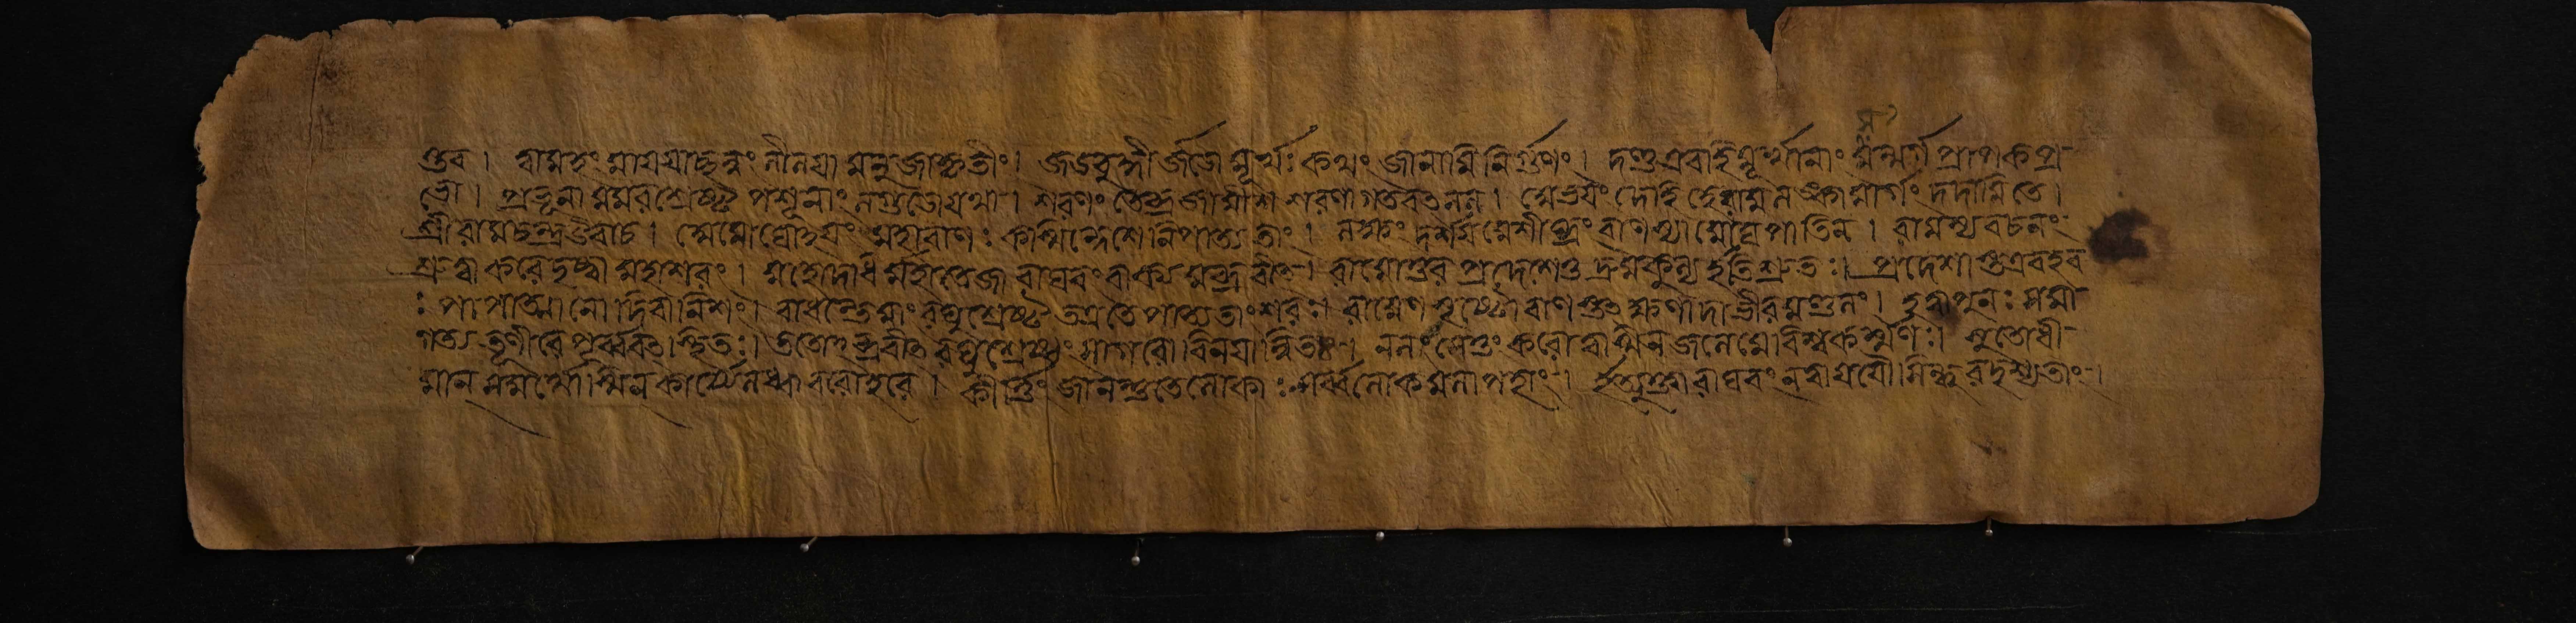 ণ্ডব। ত্বামহং মায়য়াচ্ছন্নং লীলয়া মানুজাকৃতীং। জড়বুদ্ধীর্জড়ো মূর্খঃ কথং জানামি নির্গুণং। দণ্ড এবাহি মূর্খানাং সন্মার্গ প্রাপক প্র-
ভো। প্রভূনামমরশ্রেষ্ঠ পশূনাং লগুড়োয়থা। শরণং তেব্রজামীশ শরণাগতবৎসল। মেভয়ং দেহি মেরাম লঙ্কামার্গং দদামি তে।
শ্রীরামচন্দ্র উবাচ। অমোঘোহয়ং মহাবাণঃ কস্মিন্দেশে নিপাত্যতাং। লক্ষং দর্শয় মে শীঘ্রং বাণস্যামোঘপাতিন। রামস্য বচনং
শ্রুত্বা করে দৃষ্ট্বা মহাশরং। মহোদধির্মহাতেজা রাঘবং বাক্যমব্রবীৎ। রামোত্তর প্রদেশেতু দ্রুমকুল্য ইতিশ্রুতঃ। প্রদেশাস্তত্রবহব
ঃ পাপাত্মানো দিবানিশং। বাধন্তেমাং রঘুশ্রেষ্ঠ তত্রতে পাত্যতাং শরঃ। রামেণ সৃষ্টোবাণস্তু ক্ষণাদাভীরমণ্ডলং। হত্বাপুনঃ সমা-
গত্য তূণীরে পূর্ব্ববৎ স্থিতঃ। ততোহব্রবীৎ রঘুশ্রেষ্ঠং সাগরো বিনয়ান্বিতঃ। নলঃ সেতুং করোত্বাস্মীন জলেমে বিশ্বকর্ম্মণঃ। সুতোধী-
মান্ সমর্থোস্মিন্ কার্য্যেলব্ধাবরোহরে। কীর্ত্তিং জানন্তুতে লোকাঃ সর্ব্বলোকমলাপহাং। ইত্যুক্ত্বা রাঘবং নত্বা যযৌ সিন্ধুরদৃশ্যতাং।